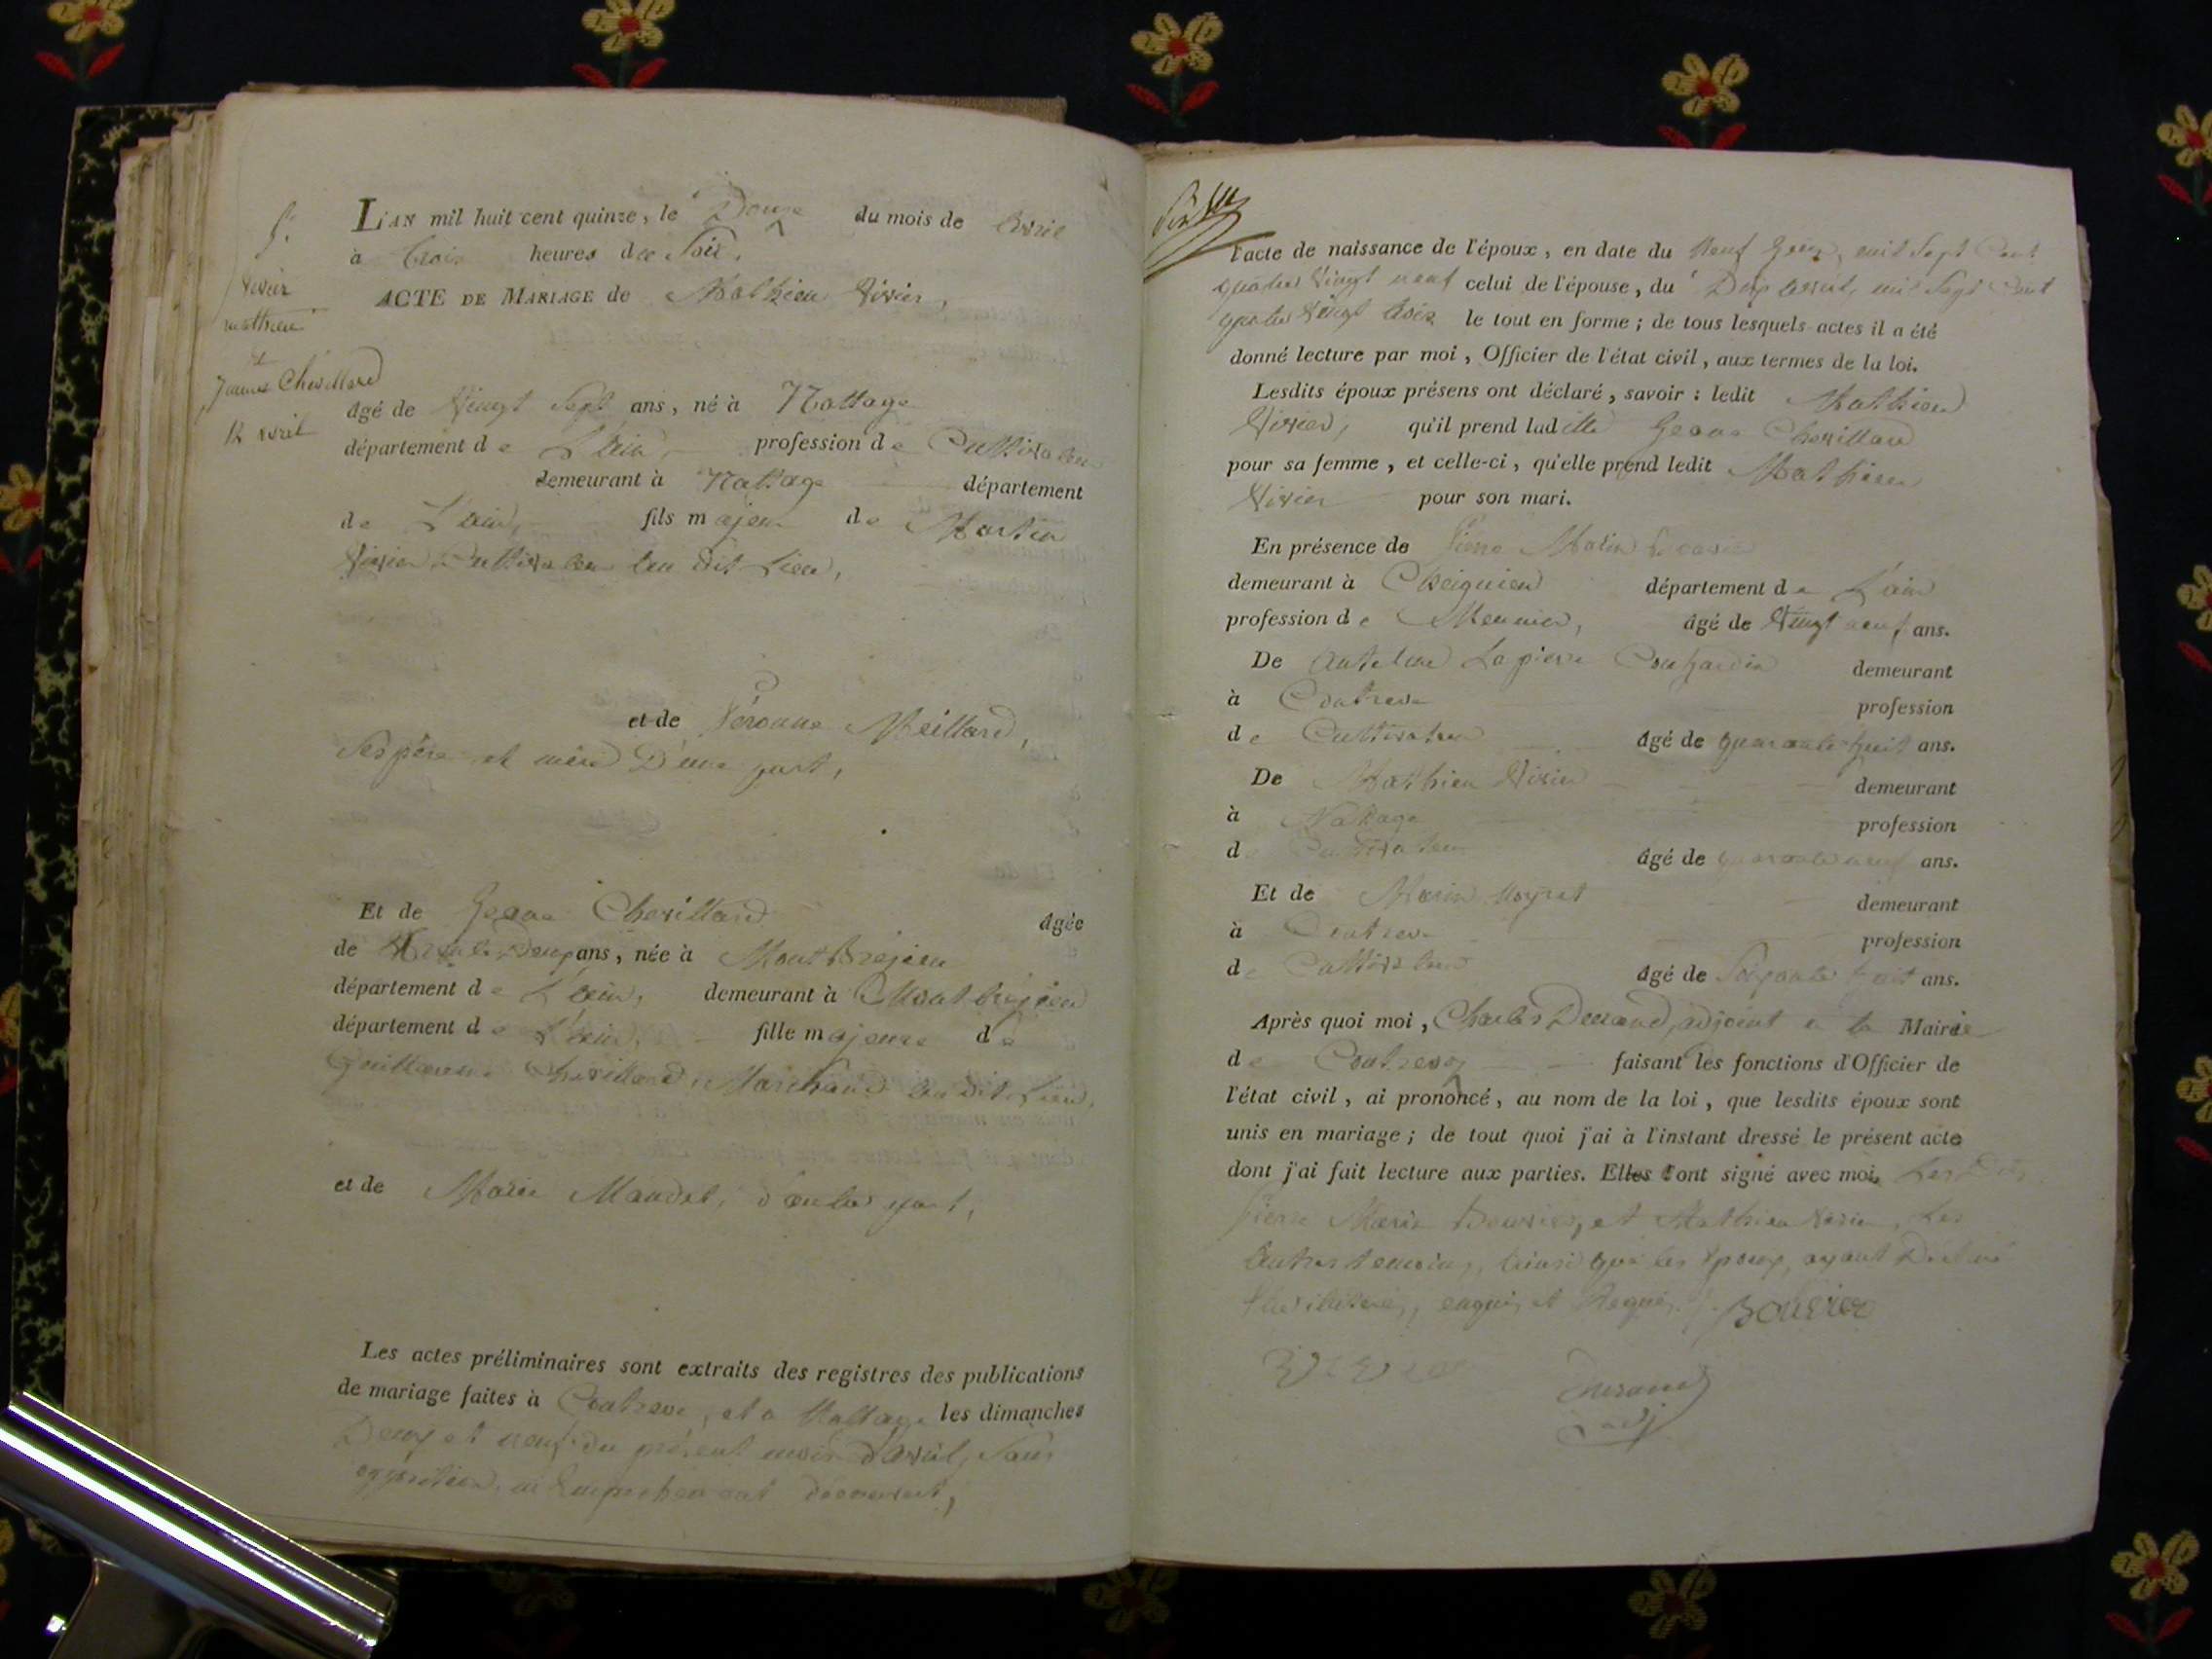 5.
Vivier
mathieu
et
Jeanne Chevillard
12 avril
L'AN mil huit cent quinze, le Douze du mois de Avril
à trois heures du Soir.
ACTE DE MARIAGE de Mathieu Vivier,
âgé de Vingt Sept ans, né à Nattage
département de L'ain, profession de Cultivateur
demeurant à Nattage département
de L'ain, fils majeur de Martin
Vivier Cultivateur au dit Lieu,
et de Péroane Meillard,
Ses père et mère D'une part,
Et de Jeane Chevillard âgée
de Deux ans, née à
département de L'ain, demeurant à
département de L'ain, fille majeure de
Guillaume Chevillard, Marchand au dit Lieu,
et de Marie Maudet, d'autre part,
Les actes préliminaires sont extraits des registres des publications
de mariage faites à Contrevoz, et a Nattage les dimanches
Deux et neuf du présent mois d'avril, Sans
opposition, ni Empechement
l'acte de naissance de l'époux, en date du Neuf mil Sept Cent
quatre Vingt neuf celui de l'épouse, du Dix avril, mil Sept Cent
quatre Vingt trois le tout en forme ; de tous lesquels actes il a été
donné lecture par moi, Officier de l'état civil, aux termes de la loi.
Lesdits époux présens ont déclaré, savoir : ledit Mathieu
Vivier, qu'il prend ladite Jeane Chevillard
pour sa femme, et celle-ci, qu'elle prend ledit Mathieu
Vivier pour son mari.
En présence de Pierre Marin
demeurant à Cheignieu département de L'ain
profession de Meunier, âgé de Vingt neuf ans.
De Antelme Lapierre demeurant
à Contrevoz profession
de Cultivateur âgé de quarante huit ans.
De Mathieu Vivier demeurant
à Nattage profession
de Cultivateur âgé de quarante neuf ans.
Et de Marin demeurant
à Contrevoz profession
de Cultivateur âgé de Soixante huit ans.
Après quoi moi, Charles Durand, adjoint a la Mairie
de Contrevoz faisant les fonctions d'Officier de
l'état civil, ai prononcé, au nom de la loi, que lesdits époux sont
unis en mariage ; de tout quoi j'ai à l'instant dressé le présent acte
dont j'ai fait lecture aux parties. Elles l'ont signé avec moi. Les Dits
Pierre Marin Bouvier, et Mathieu Vivier, Les
autres temoins, ainsi que les Epoux, ayant Déclaré
enquis et Requis. Bouvier
Vivier
Durand
adj